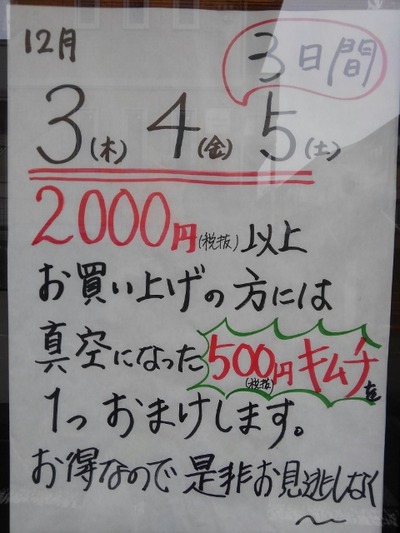 12月
3日間
3(木) 4(金) 5(土)
2000円(税抜)以上
お買い上げの方には
真空になった500円(税抜)キムチを
1つおまけします。
お得なので是非お見逃しなく
〜